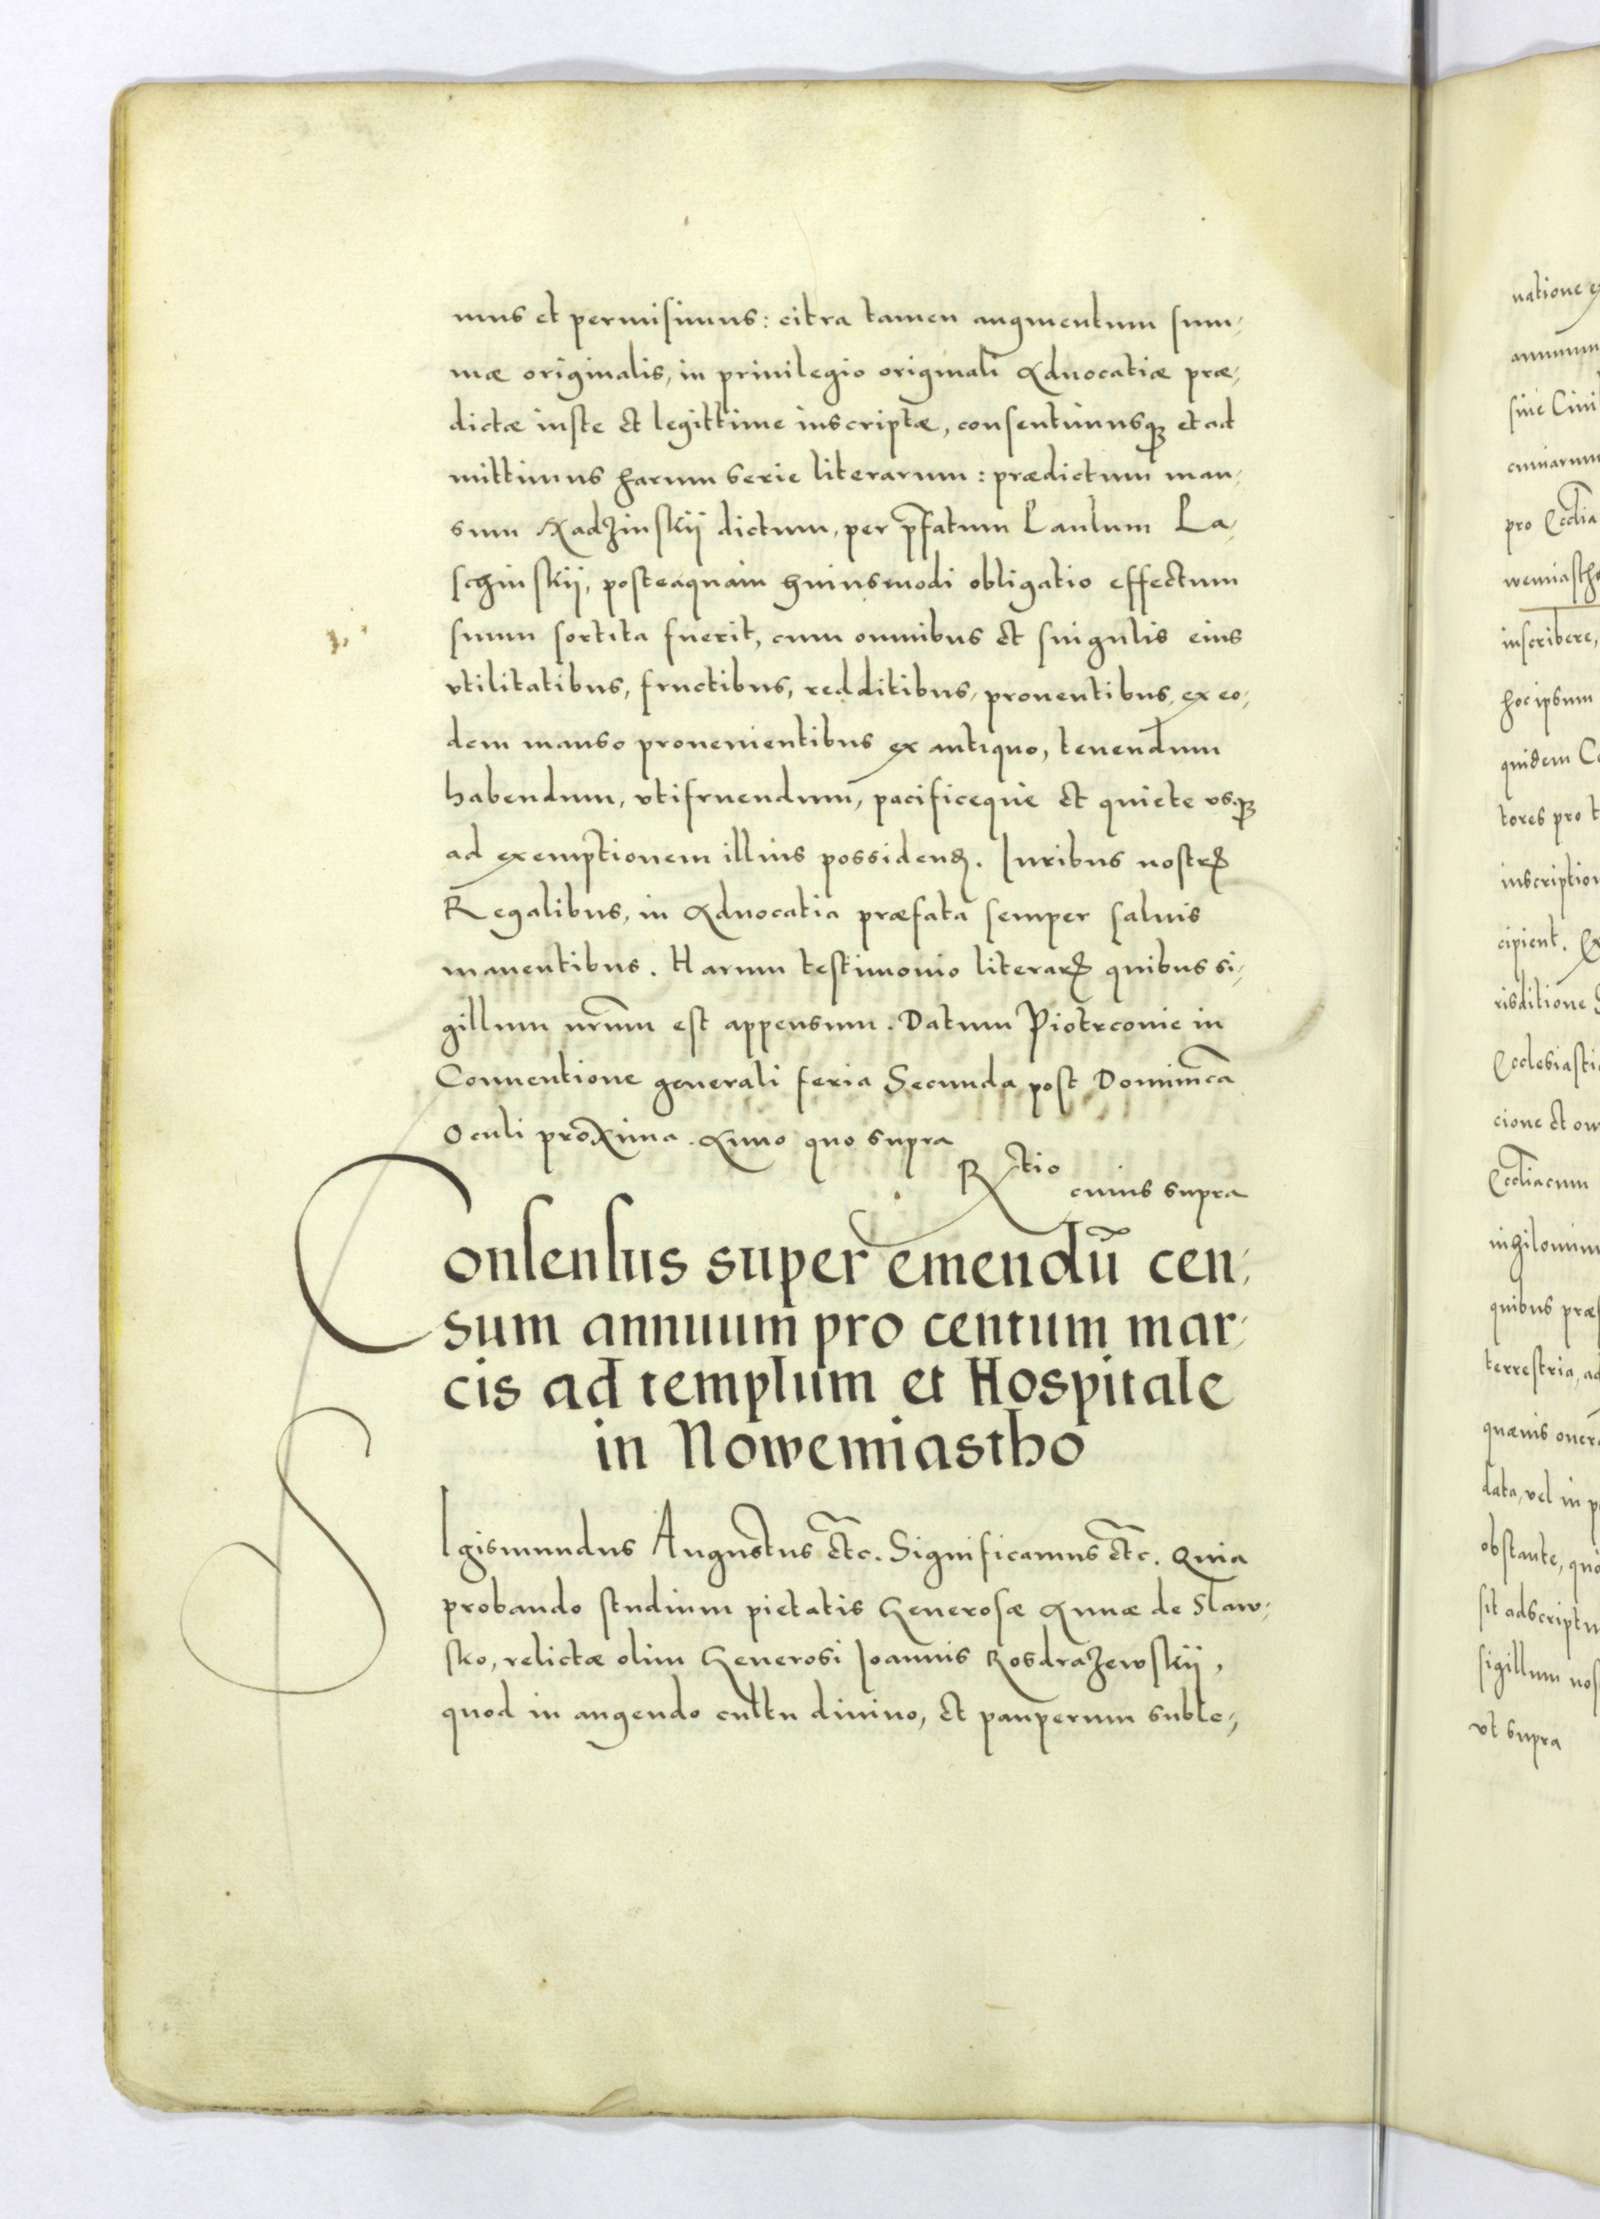 mus et permisimus: citra tamen augmentum sum-
mæ originalis, in priuilegio originali Aduocatiæ præ-
dictæ iuste et legittime inscriptæ, consentimusqꝫ et ad
mittimus harum serie literarum: prædictum man-
sum Radzinskij dictum, per p̄fatum Paulum La-
schinskij, posteaquam huiusmodi obligatio effectum
suum sortita fuerit, cum omnibus et singulis eius
vtilitatibus, fructibus, redditibus, prouentibus, ex eo-
dem manso prouenientibus ex antiquo, tenendum
habendum, vtifruendum, pacificeque et quiete vsqꝫ
ad exemptionem illius possidend. Iuribus nostrꝝ
Regalibus, in Aduocatia præfata semper saluis
manentibus. Harum testimonio literarꝝ quibus si-
gillum nr̄um est appensum. Datum Piotrconie in
Conuentione generali feria Secunda post Dominica
Oculi proxima. Anno quo supra
Rctio
cuius supra
Consensus super emendū cen-
sum annuum pro centum mar-
cis ad templum et Hospitale
in Nowemiastho
SIgismundus Augustus etc. Significamus etc. Quia
probando studium pietatis Generosæ Annæ de Slaw-
sko, relictæ olim Generosi Ioannis Rosdrazewskij,
quod in augendo cultu diuino, et pauperum suble-
natione ex
sine Ciui
pro Ecclia
inscribere,
hoc ipsum
quidem
tores pro
inscription
cipient.
risditione
Ecclesiasti
cione et
Eccliacum
nihilominu
quibus præ
terrestria, ad
quæuis
data, vel in
obstante,
sit adscriptu
sigillum nos
vt supra